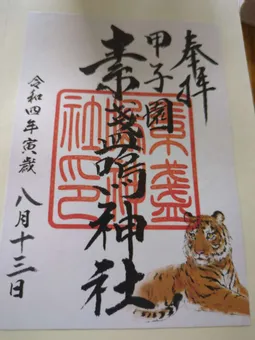 奉拝
甲子園
素盞嗚神社
素盞嗚神社印
令和四年寅歳
八月十三日